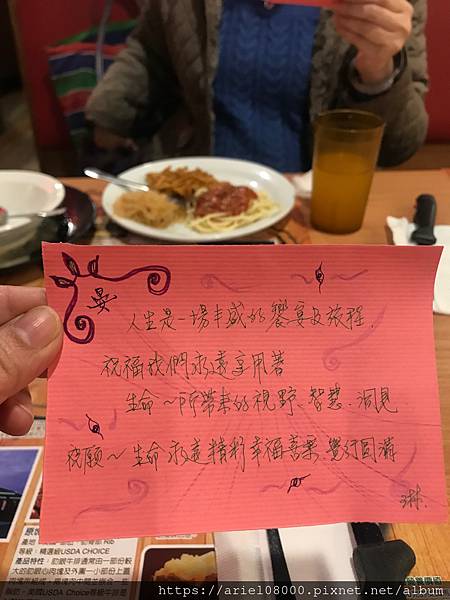 晏
人生是一場丰盛的饗宴及旅程.
祝福我們永遠享用著
生命～所帶來的視野、智慧、洞見
祝願～生命永遠精彩幸福喜樂 覺行圓滿
琳
等級：精選級USDA CHOICE
https://ariel08000.pixnet.net/album